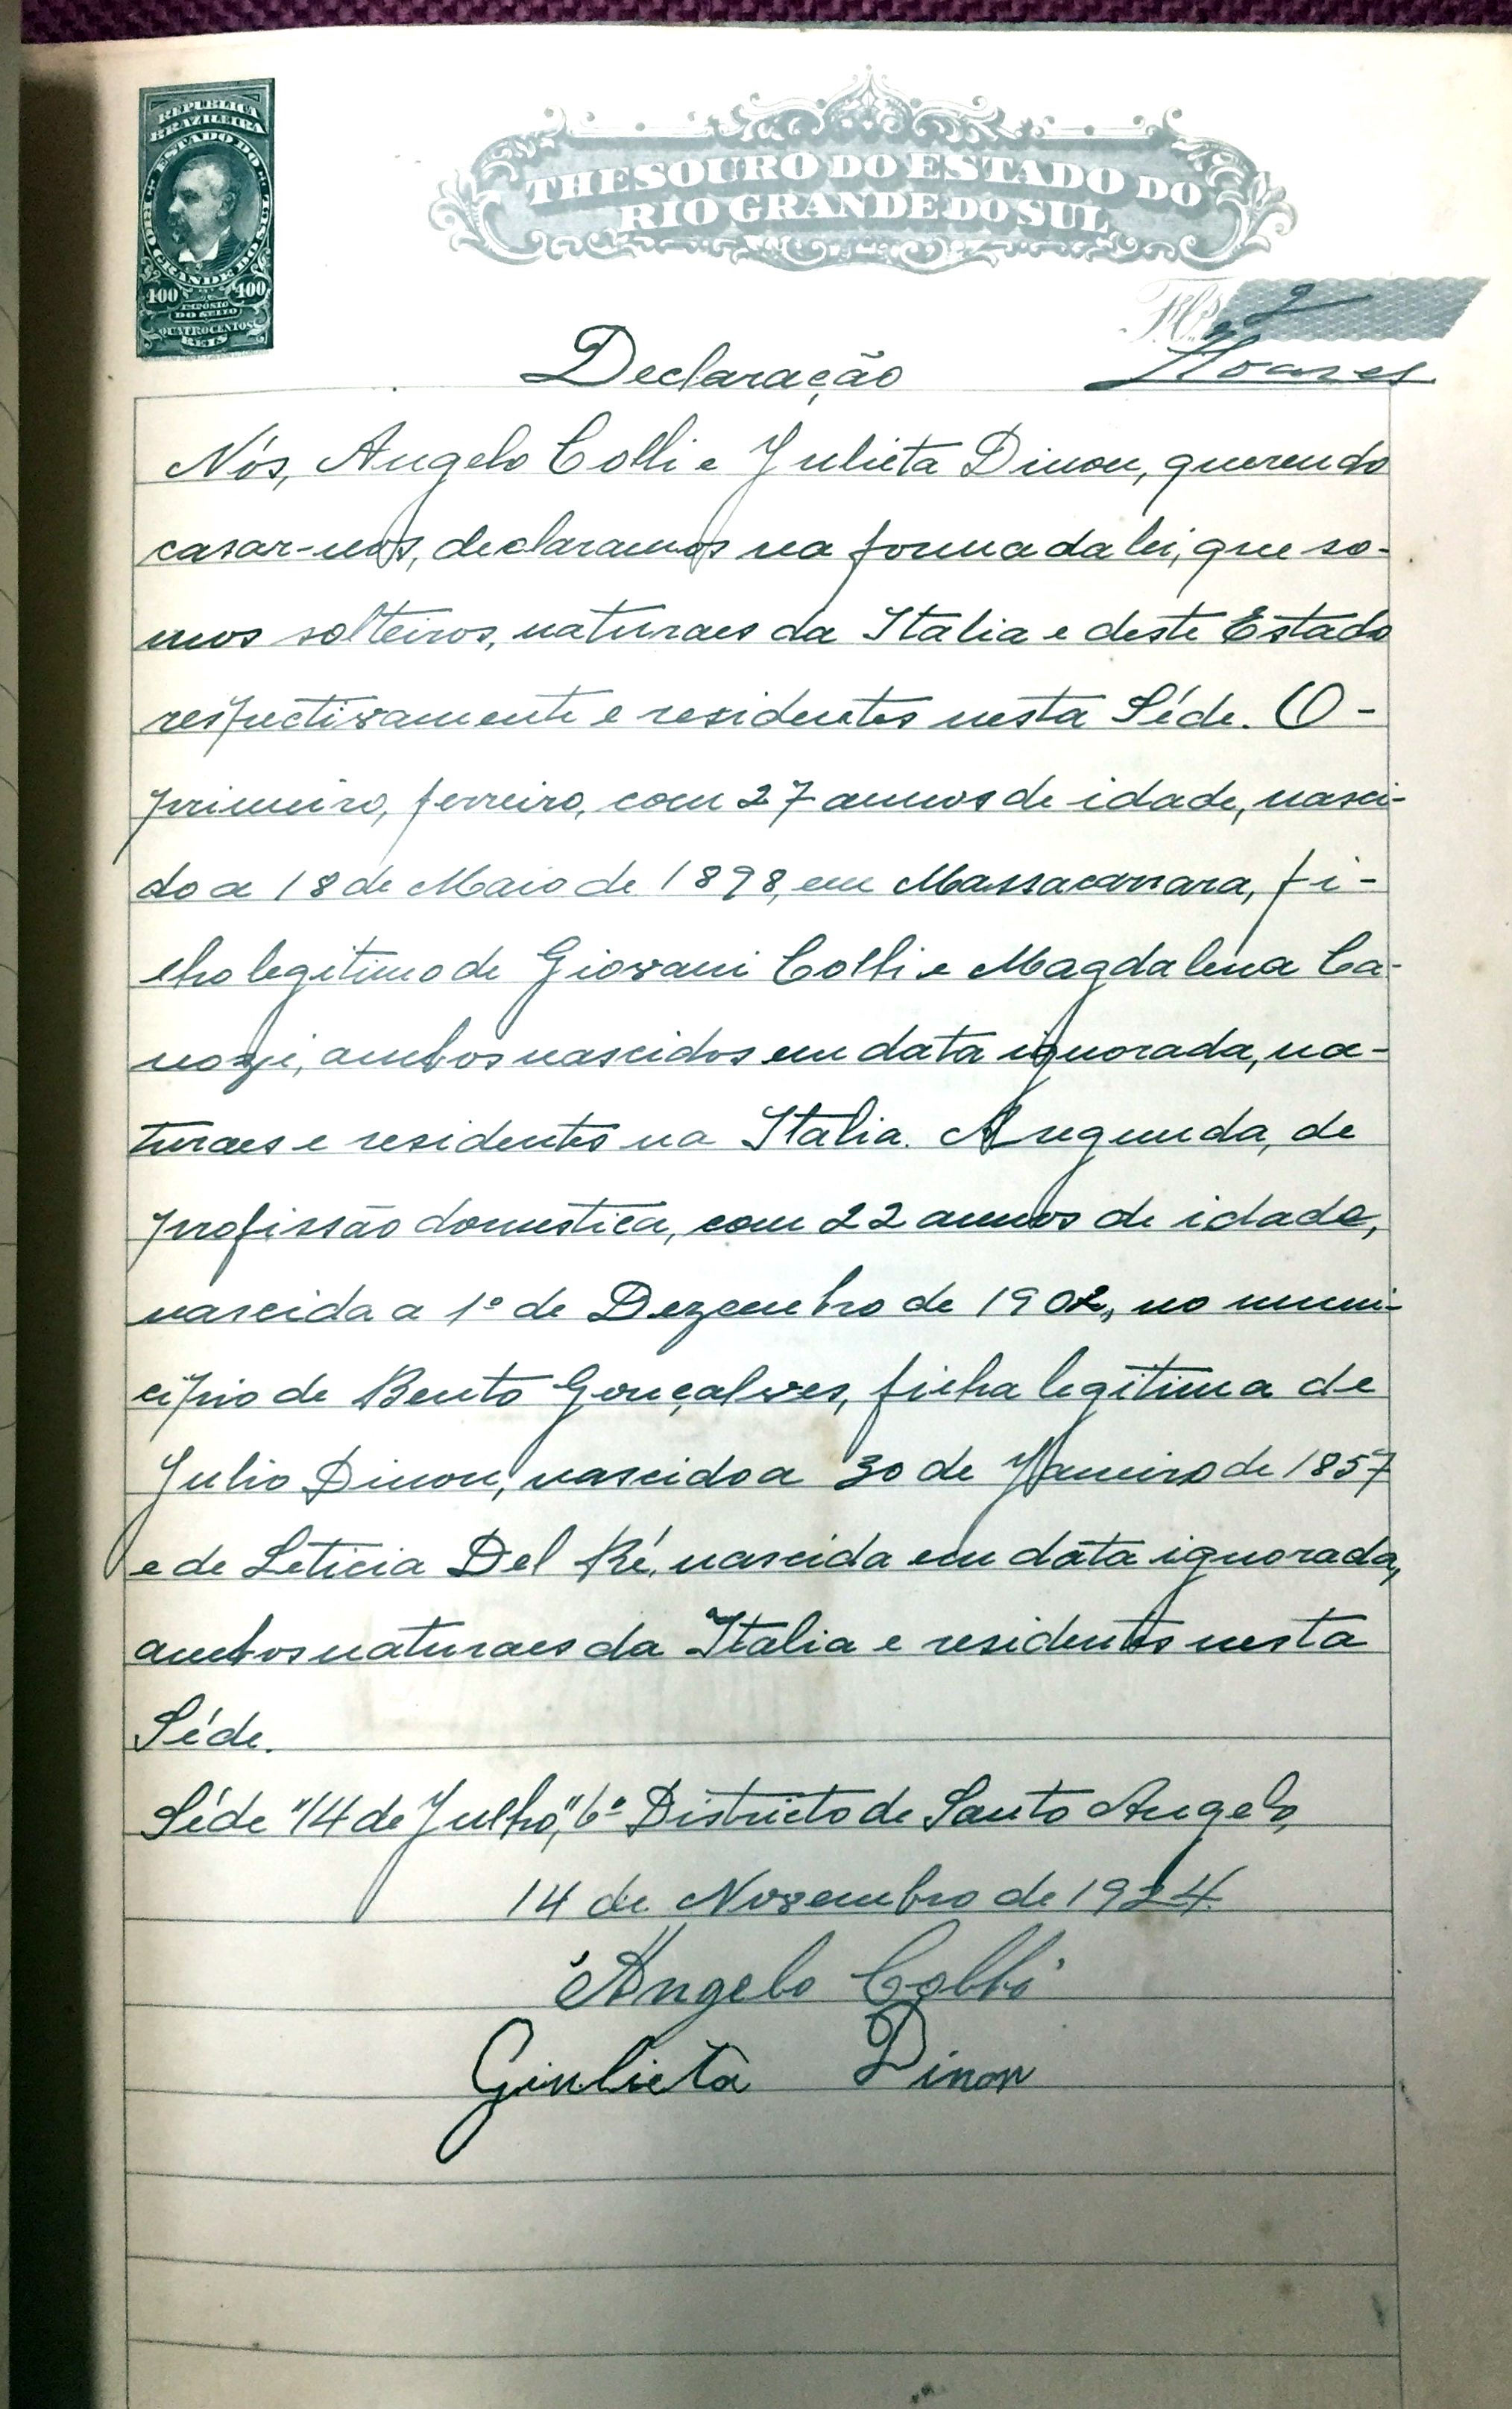 REPUBLICA
BRAZILEIRA
ESTADO DO
RIO GRANDE DO SUL
400 400
IMPOSTO
DO SELLO
QUATROCENTOS
REIS
THESOURO DO ESTADO DO
RIO GRANDE DO SUL
2
Declaração
Nós, Angelo Colli e Julieta Dinon, querendo
casar-nos, declaramos na forma da lei, que so-
mos solteiros, naturaes da Italia e deste Estado
respectivamente e residentes nesta Séde. O -
primeiro, ferreiro, com 27 annos de idade, nasci-
do a 18 de Maio de 1898, em Massacarrara, fi-
lho legitimo de Giovani Colli e Magdalena Ca-
nozi, ambos nascidos em data ignorada, na-
turaes e residentes na Italia. A segunda, de
profissão domestica, com 22 annos de idade,
nascida a 1º de Dezembro de 1902, no muni-
cipio de Bento Gonçalves, filha legitima de
Julio Dinon, nascido a 30 de Janeiro de 1857
e de Leticia Del Ré, nascida em data ignorada,
ambos naturaes da Italia e residentes nesta
Séde.
Séde "14 de Julho", 6º Districto de Santo Angelo,
14 de Novembro de 1924.
Angelo Colli
Giulieta Dinon